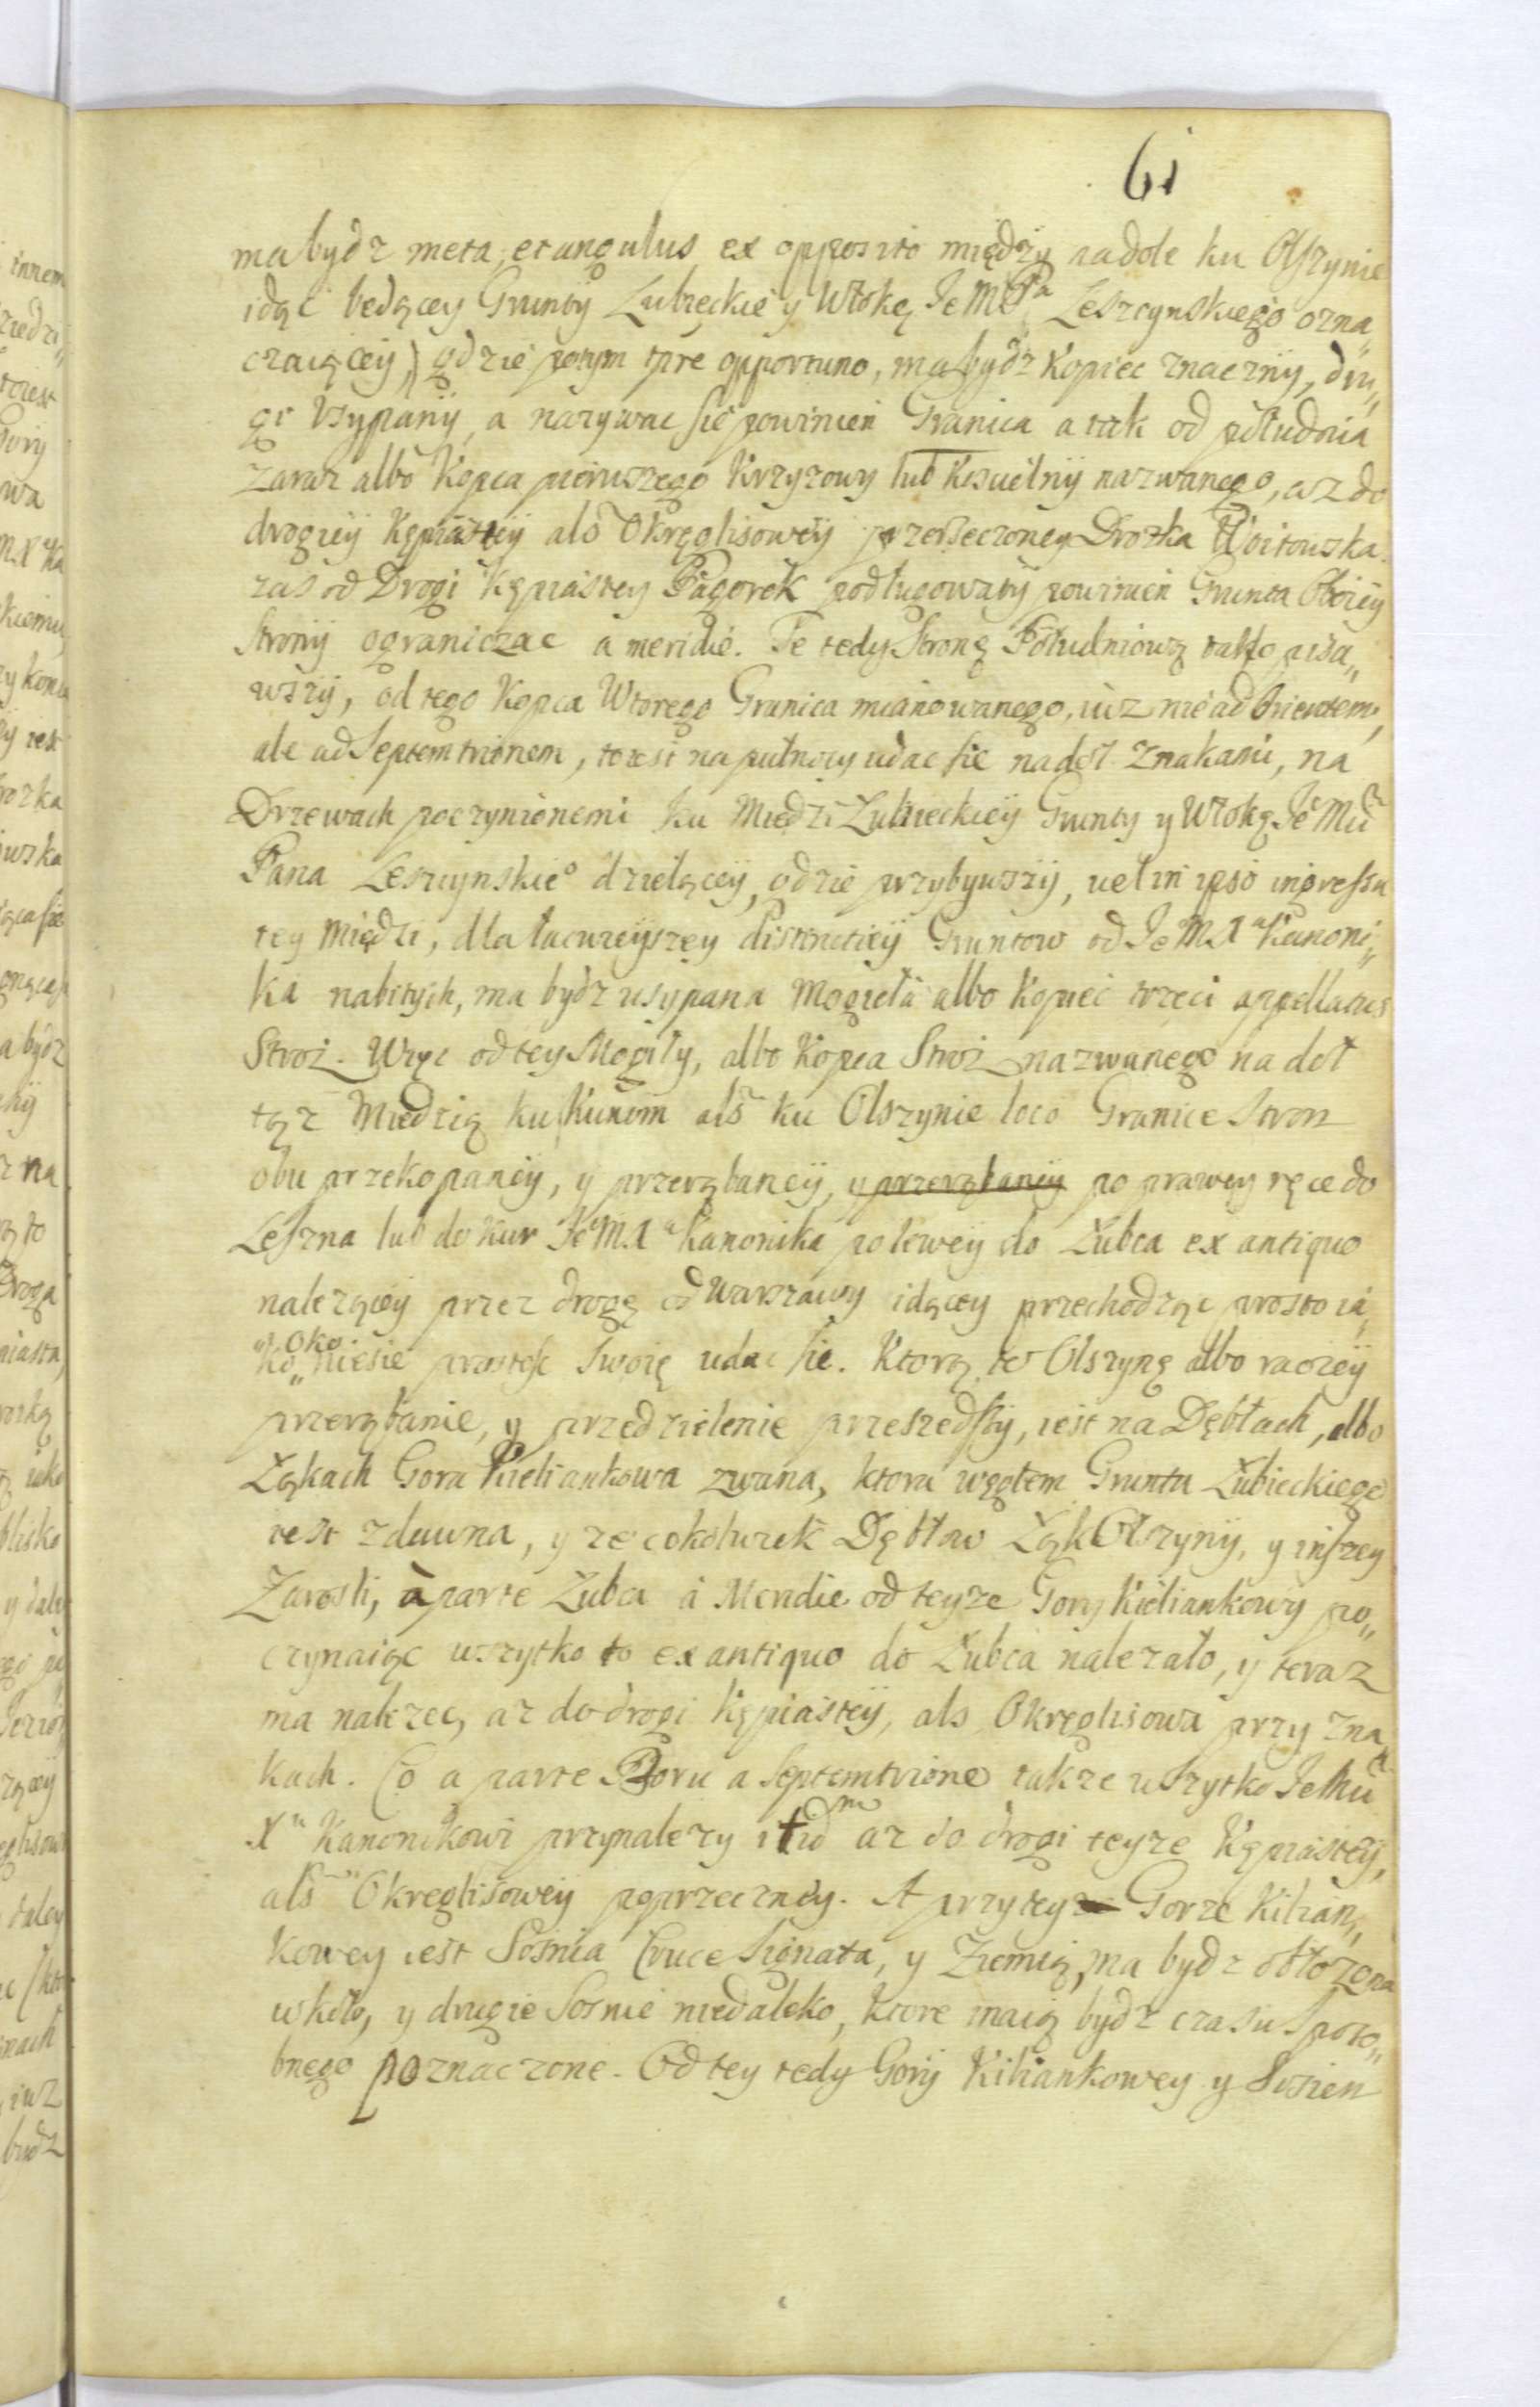 61
ma bydz meta, et angulus ex opposito między nadole ku Olszynie
idąc będącey Grunty Zubieckie y Włokę Je MP<sup>a</sup> Leszczynskiego ozna„
czaiącey) gdzie potym tpre opportuno, ma bydz Kopiec znaczny, dru„
gi Usypany, a nazywac się powinien Granica a tak od południa
Zaraz albo Kopca pierwszego Krzyzowy lub Koscielny nazwanego, az do
drogiey Kępiastey als Okręglisowey przesieczoney Drozka Woitowska
zas od Drogi Kępiastey Pagorek podługowaty powinien Grunta Oboiey
Strony ograniczac a meridie. Te tedy Stronę Południową tak opisa„
wszy, od tego Kopca Wtorego Granica mianowanego, iuz nie ad Orientem,
ale ad Septemtrionem, to iest na pułnocy udac się nadół Znakami, na
Drzewach poczynionemi ku Miedzi Zubieckiey Grunty y Włokę Je Mci
Pana Leszczynskie° dzielącey, gdzie przybywszy, vel in ipso ingressu
tey Miedzi, dla łacwieyszey distinctiey Gruntow od Je MX<sup>a</sup> Kanoni„
ka nabitych, ma bydz usypana Mogieła albo Kopiec trzeci appellatus
Stroz. Więc od tey Mogiły, albo Kopca Stroz nazwanego na doł
tąz Miedzią ku Kunom als ku Olszynie loco Granice Stron
obu przekopaney, y przerąbaney, y przerąbaney po prawey ręce do
Leszna lub do Kur Je MX<sup>a</sup> Kanonika po lewey do Zubca ex antiquo
nalezącey przez drogę od Warszawy idącey przechodząc prosto ia„
ko „Oko niesie prostosc Swoię udac się. Ktorą to Olszynę albo raczey
przerąbanie, y przedzielenie przeszedszy, iest na Dębłach, albo
Ząkach Gora Kieliankowa zwana, ktora węgłem Gruntu Zubieckiego
iest zdawna, y ze cokolwiek Dębłow Ząk Olszyny, y inszey
Zarosli, a parte Zubca a Meridie od teyze Gory Kieliankowy po„
czynaiąc wszytko to ex antiquo do Zubca nalezało, y teraz
ma nalezec, az do drogi Kępiastey, als Okręglisowa przy Zna„
kach. Co a parte Boru a Septemtrione takze wszytko Je Mci
X<sup>u</sup> Kanonikowi przynalezy itid<sup>m</sup> az do drogi teyze Kępiastey,
als Okreglisowey poprzeczney. A przy tey Gorze Kilian„
kowey iest Sosnia Cruce Signata, y Ziemią, ma bydz obłozona
wkoło, y drugie Sosnie niedaleko, ktore maią bydz czasu sposo„
bnego poznaczone. Od tey tedy Gory Kiliankowey y Sosien